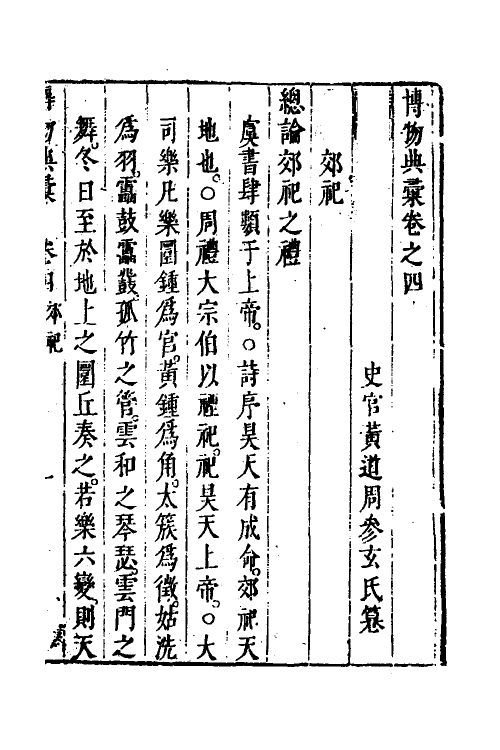 博物典彚卷之四
史官黃道周參玄氏纂
郊祀
總論郊祀之禮
虞書肆類于上帝。○詩序昊天有成命。郊祀天
地也。○周禮大宗伯以禮祀。祀昊天上帝。○大
司樂凡樂圜鍾爲宮。黃鍾爲角。太簇爲徵。姑洗
爲羽。靁鼓靁鼗。孤竹之管。雲和之琴瑟。雲門之
舞。冬日至於地上之圜丘奏之。若樂六變。則天
博物典彚 卷四 郊祀 一